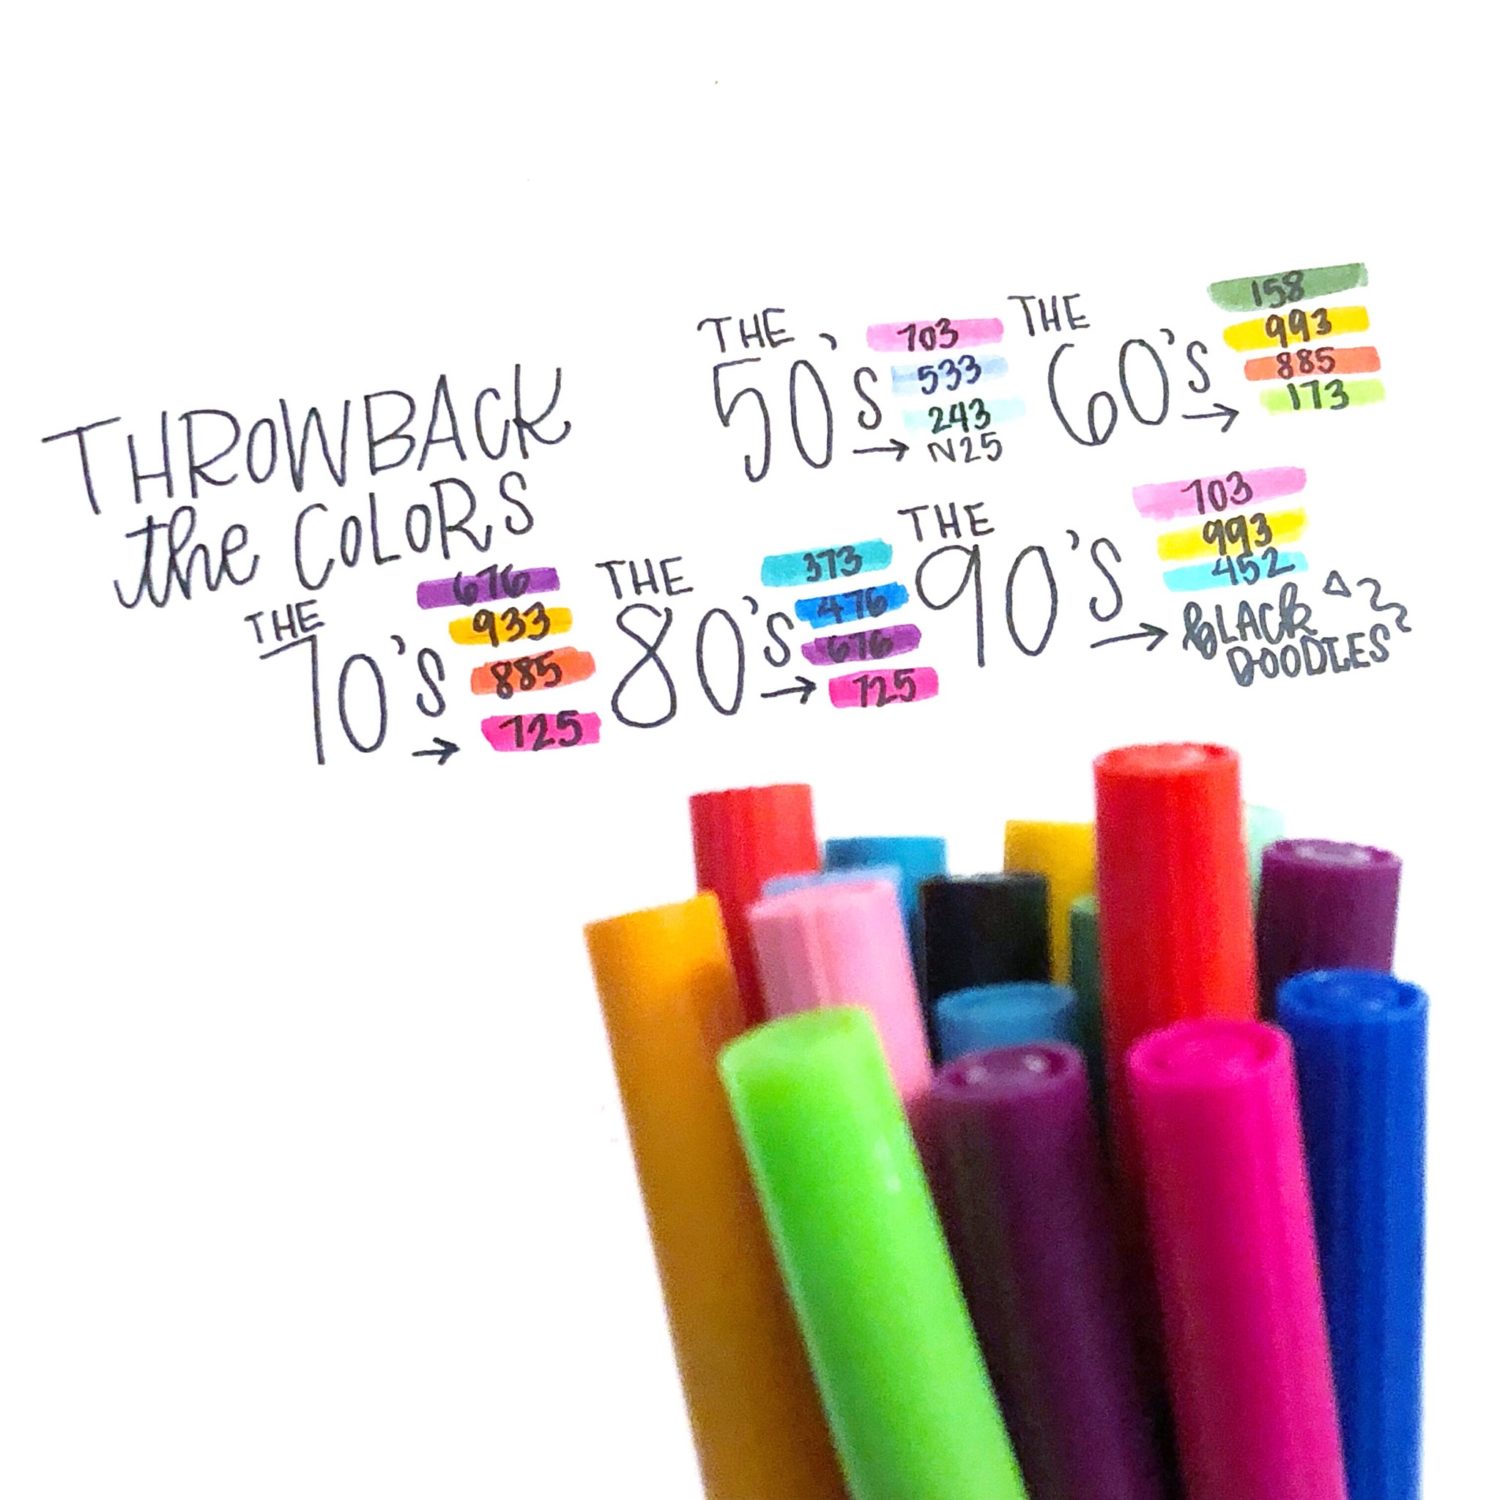 THROWBACK
the COLORS
THE
50's →
703
533
243
N25
THE
60's →
158
993
885
173
THE
70's →
676
933
885
725
THE
80's →
373
476
676
725
THE
90's →
703
993
452
BLACK
DOODLES